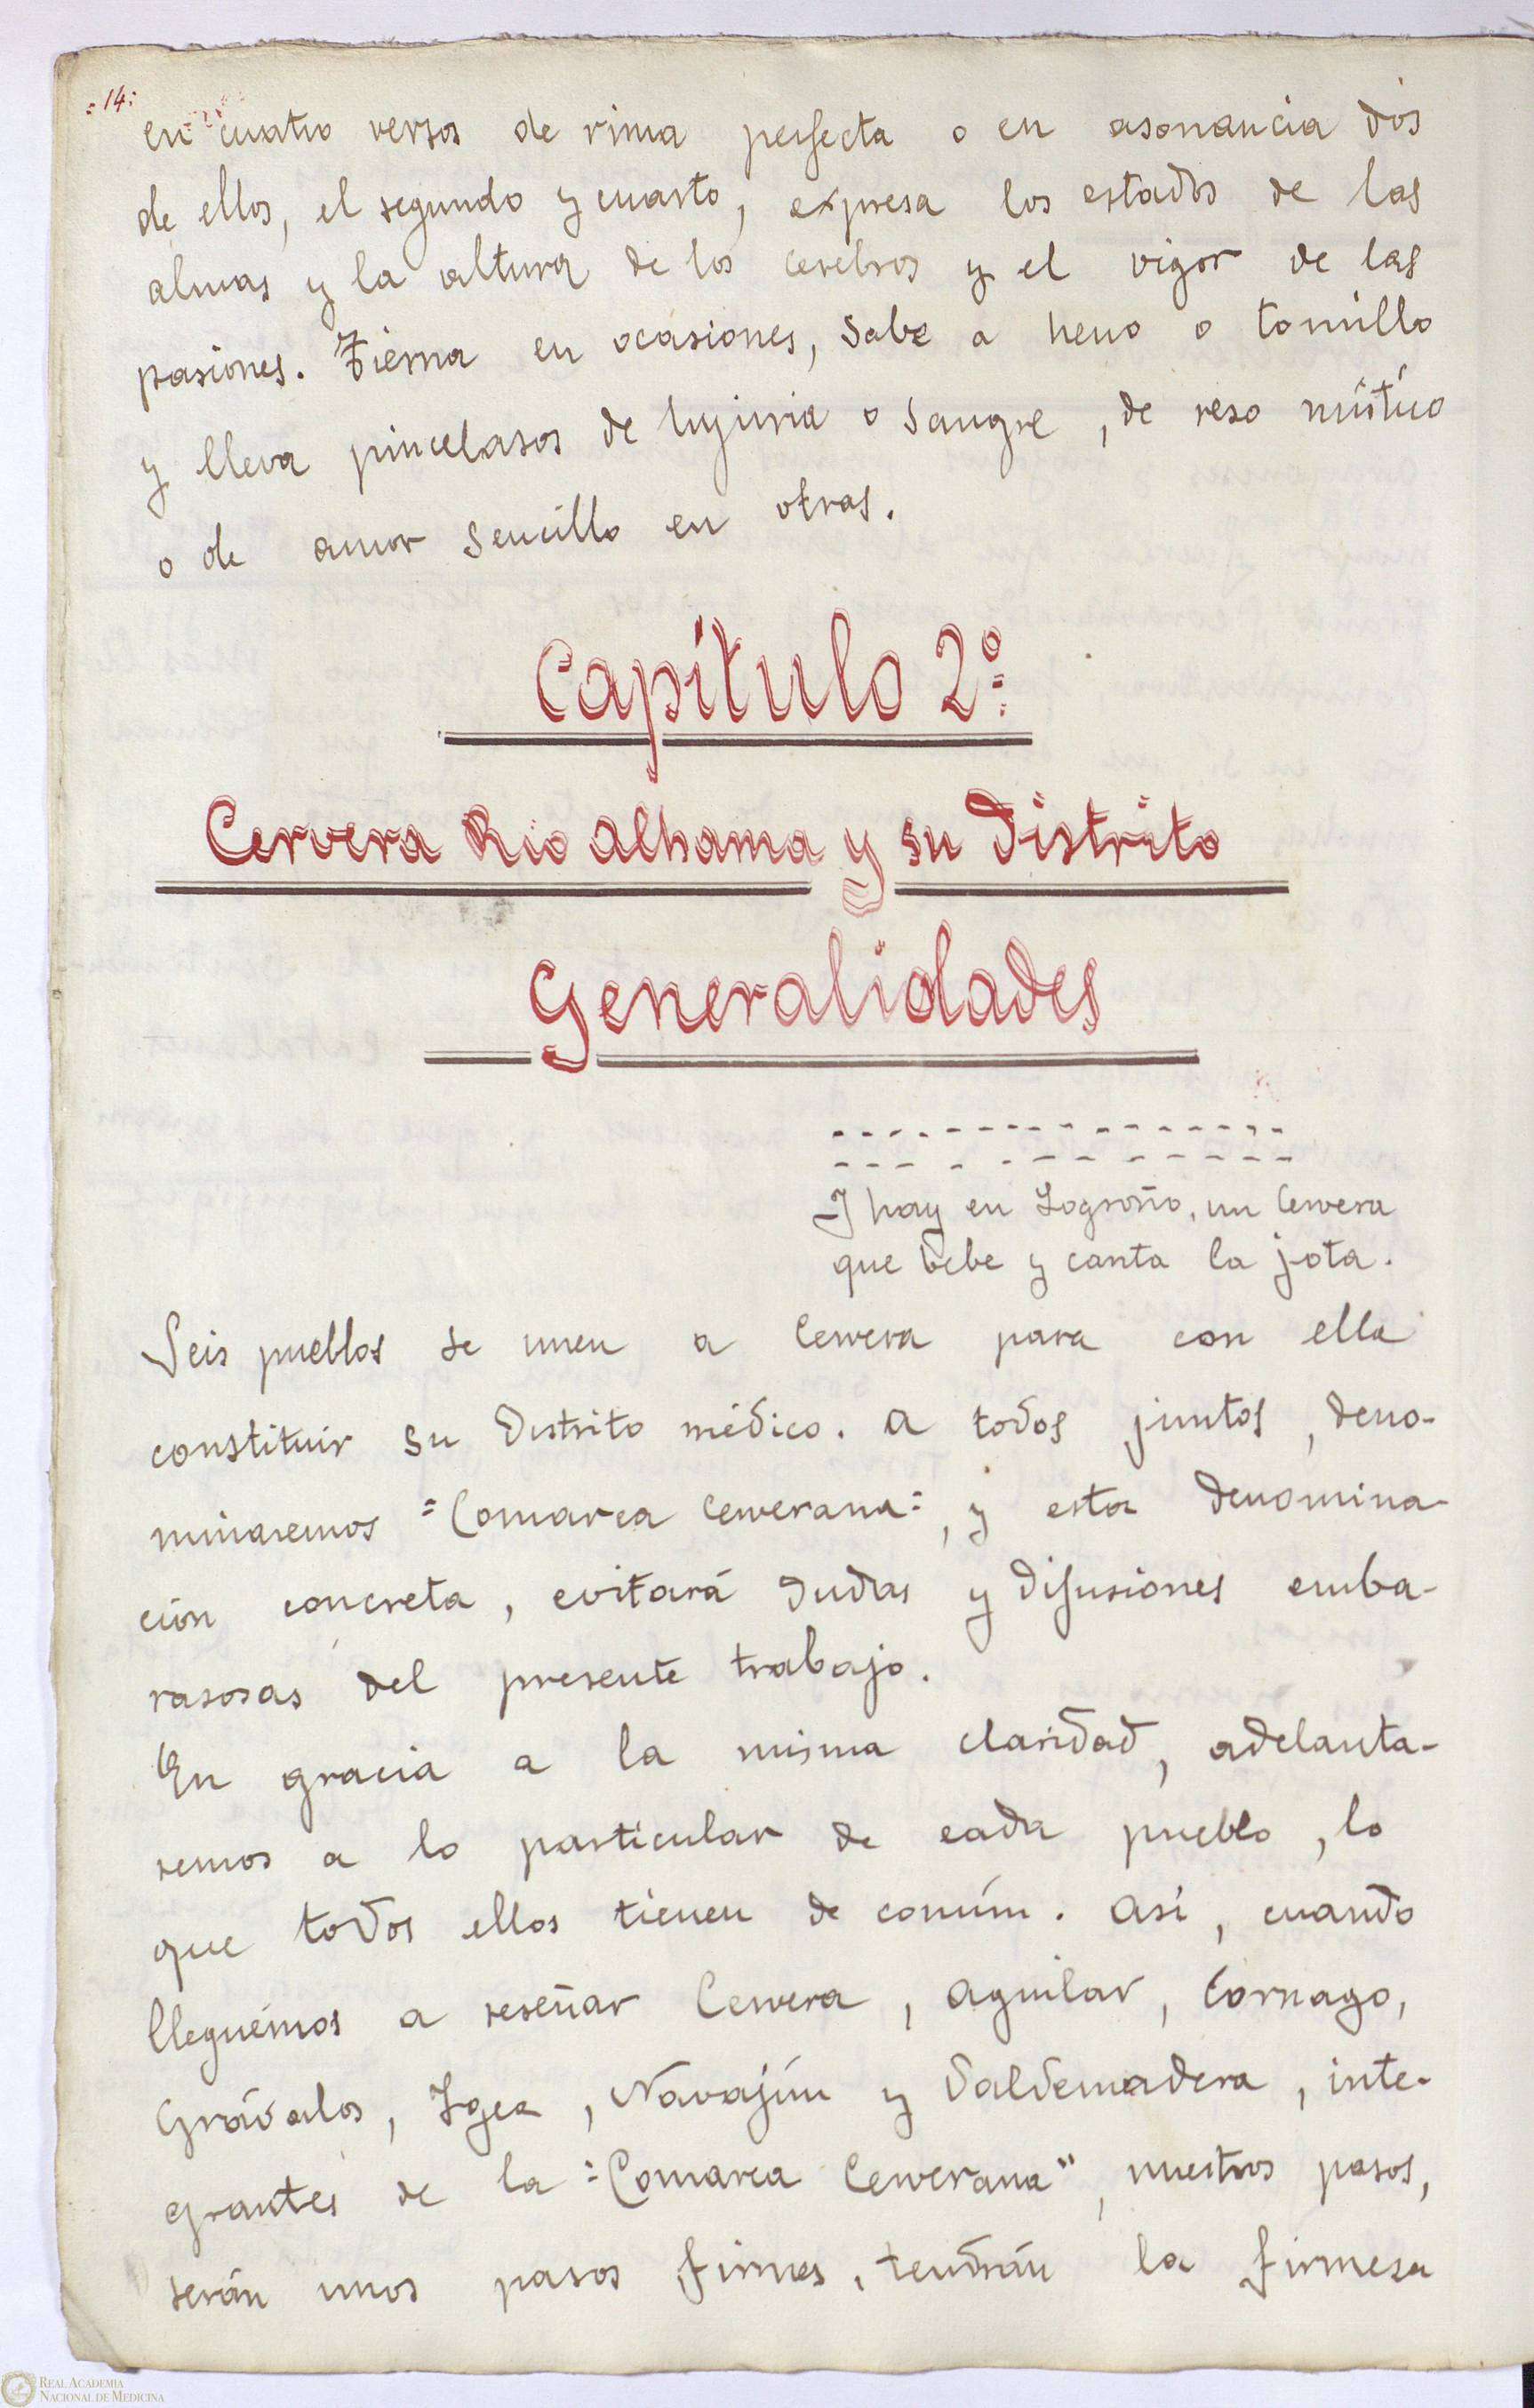 =14=
en cuatro versos de rima perfecta o en asonancia dos
de ellos, el segundo y cuarto, expresa los estados de las
almas y la altura de los cerebros y el vigor de las
pasiones. Tierna en ocasiones, sabe a heno o tomillo
y lleva pincelasos de lujuria o sangre, de reso místico
o de amor sencillo en otras.
Capítulo 2º
Cervera Rio Alhama y su Distrito
Generalidades
Y hay en Logroño, un Cervera
que bebe y canta la jota.
Seis pueblos se unen a Cervera para con ella
constituir su Distrito médico. A todos juntos, deno-
minaremos "Comarca Cerverana", y esta denomina-
ción concreta, evitará dudas y difusiones emba-
rasosas del presente trabajo.
En gracia a la misma claridad, adelanta-
remos a lo particular de cada pueblo, lo
que todos ellos tienen de común. Así, cuando
lleguémos a reseñar Cervera, Aguilar, Cornago,
Grávalos, Igea, Navajún y Valdemadera, inte-
grantes de la "Comarca Cerverana", nuestros pasos,
serán unos pasos firmes, tendrán la firmesa
REAL ACADEMIA
NACIONAL DE MEDICINA